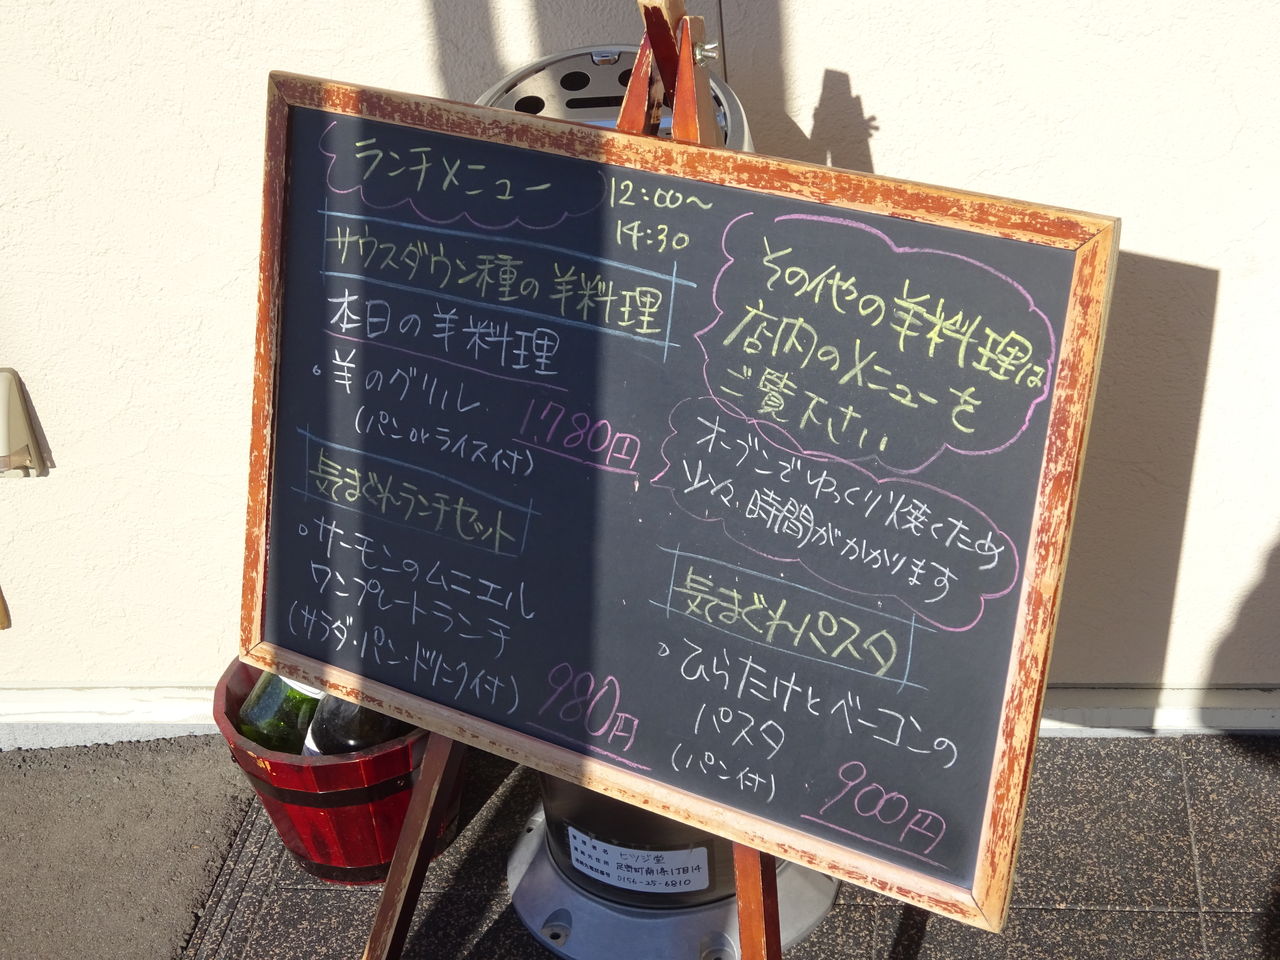 ランチメニュー
12:00〜
14:30
サウスダウン種の羊料理
本日の羊料理
。羊のグリル
(パンorライス付)
1,780円
気まぐれランチセット
。サーモンのムニエル
ワンプレートランチ
(サラダ・パン・ドリンク付)
980円
その他の羊料理は
店内のメニューを
ご覧下さい
オーブンでゆっくり焼くため
少々、時間がかかります
気まぐれパスタ
。ひらたけとベーコンの
パスタ
(パン付)
900円
管理者名 ヒツジ堂
連絡先住所
連絡先電話番号 0156-25-6810